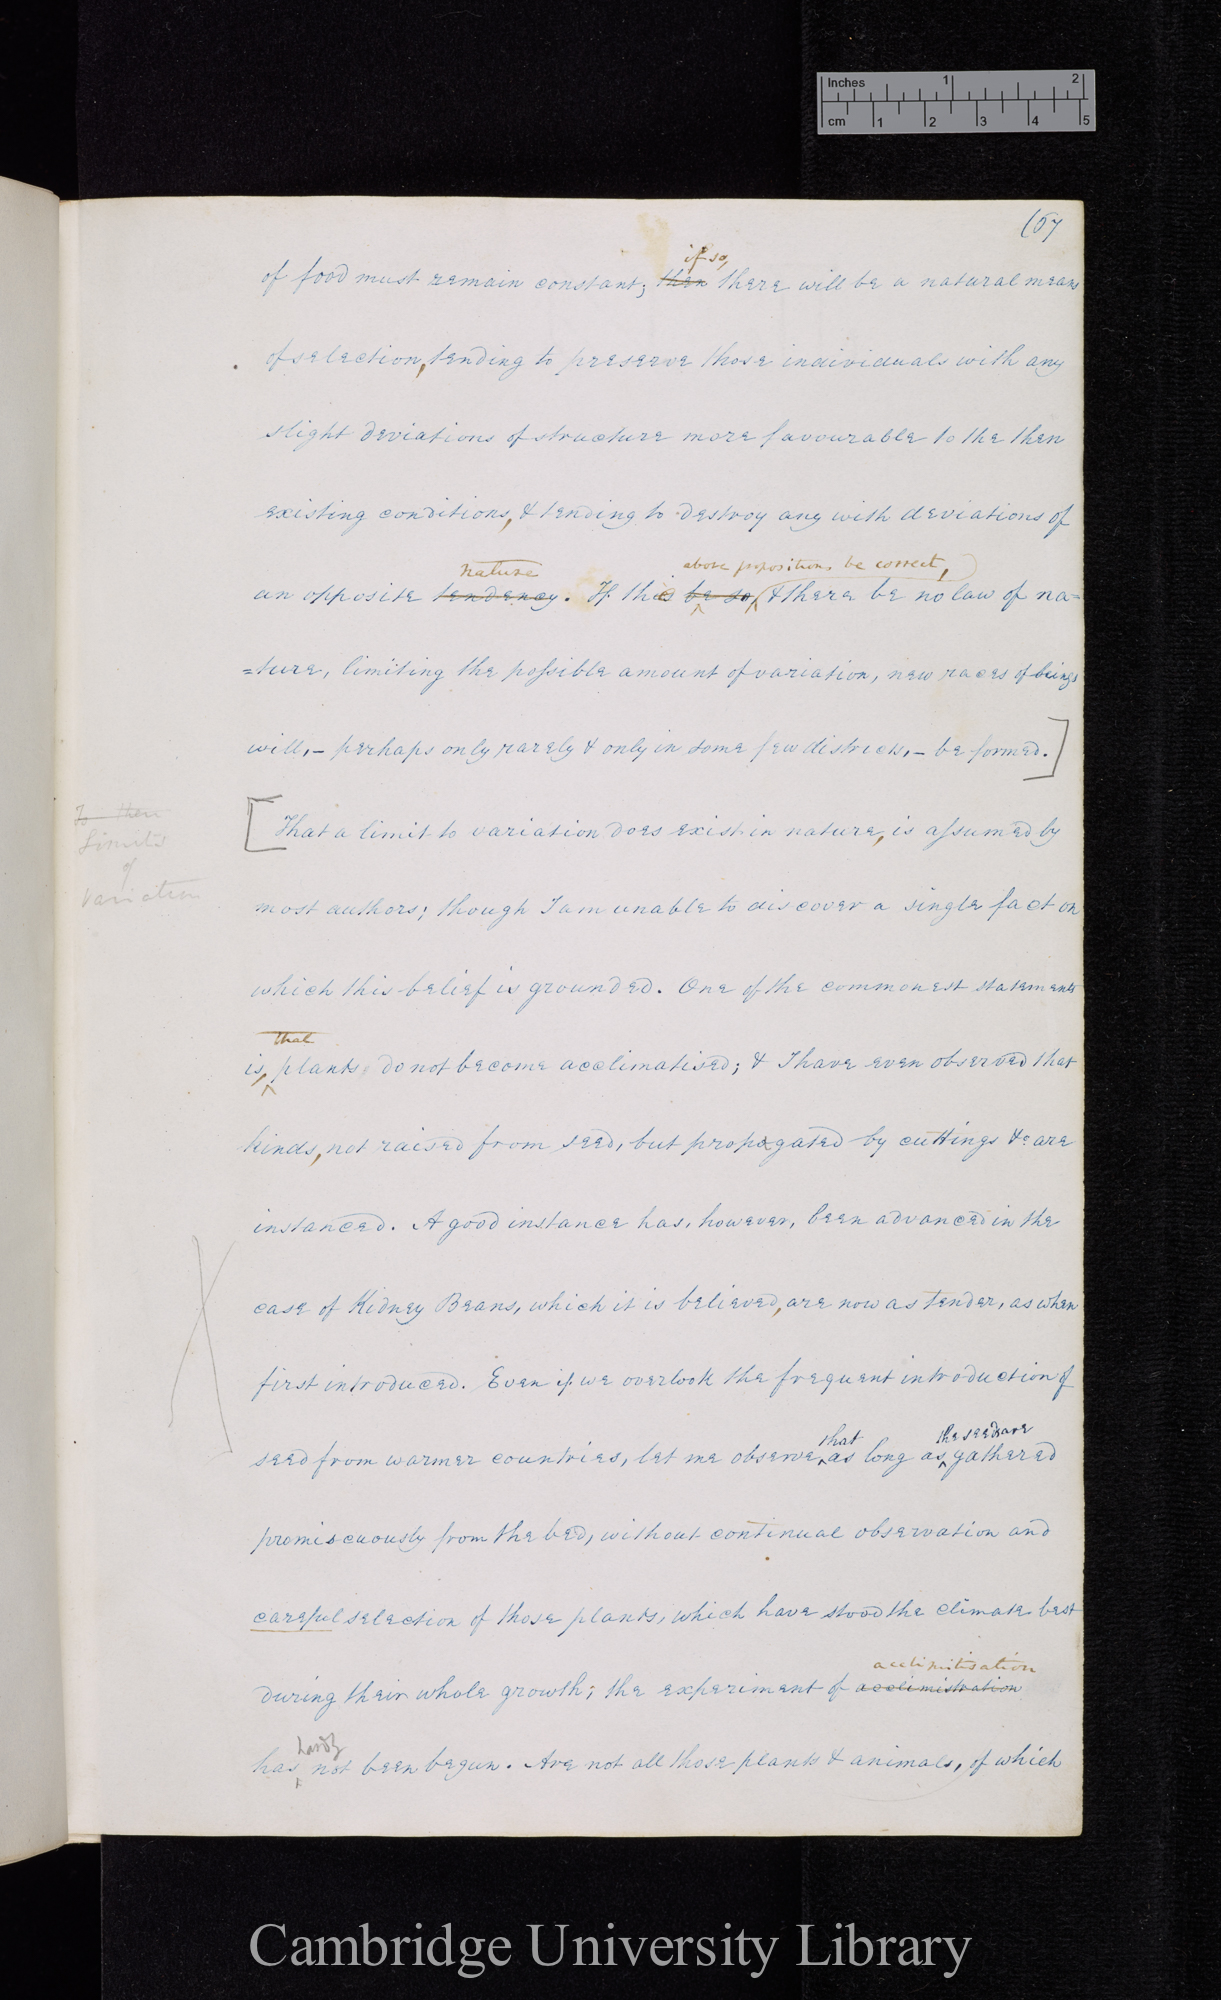 Inches 1 2
cm 1 2 3 4 5
(57
if so,
of food must remain constant; then there will be a natural means
of selection, tending to preserve those individuals with any
slight deviations of structure more favourable to the then
existing conditions, & tending to destroy any with deviations of
nature above propositions be correct,
an opposite tendency. If the be so, & there be no law of na=
=ture, limiting the possible amount of variation, new races of beings
will,– perhaps only rarely & only in some few districts,– be formed.]
[That a limit to variation does exist in nature, is assumed by
Limits
of
variation
most authors; though I am unable to discover a single fact on
which this belief is grounded. One of the commonest statements
that
is, plants do not become acclimatised; & I have even observed that
kinds, not raised from seed, but propagated by cuttings &c are
instanced. A good instance has, however, been advanced in the
case of Kidney Beans, which it is believed, are now as tender, as when
first introduced. Even if we overlook the frequent introduction of
that the seeds are
seed from warmer countries, let me observe as long as gathered
promiscuously from the bed, without continual observation and
careful selection of those plants, which have stood the climate best
acclimitisation
during their whole growth; the experiment of acclimistration
hardly
has not been begun. Are not all those plants & animals, of which
Cambridge University Library